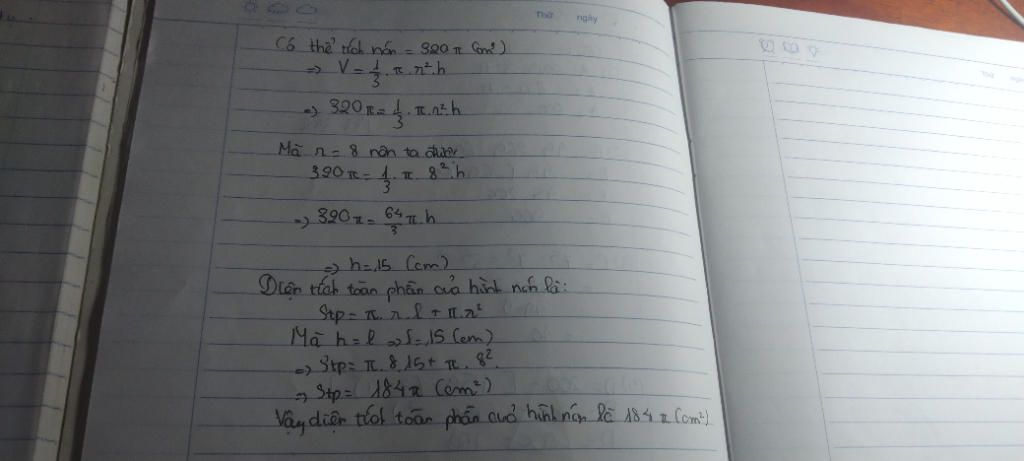 Thứ ngày
Có thể tích nón = 320π (cm³)
=> V = 1/3 . π . r² . h
=> 320π = 1/3 . π . r² . h
Mà r = 8 nên ta được
320π = 1/3 . π . 8² . h
=> 320π = 64/3 π . h
=> h = 15 (cm)
Diện tích toàn phần của hình nón là:
Stp = π . r . l + π . r²
Mà h = l => l = 15 (cm)
=> Stp = π . 8 . 15 + π . 8²
=> Stp = 184π (cm²)
Vậy diện tích toàn phần của hình nón là 184π (cm²)